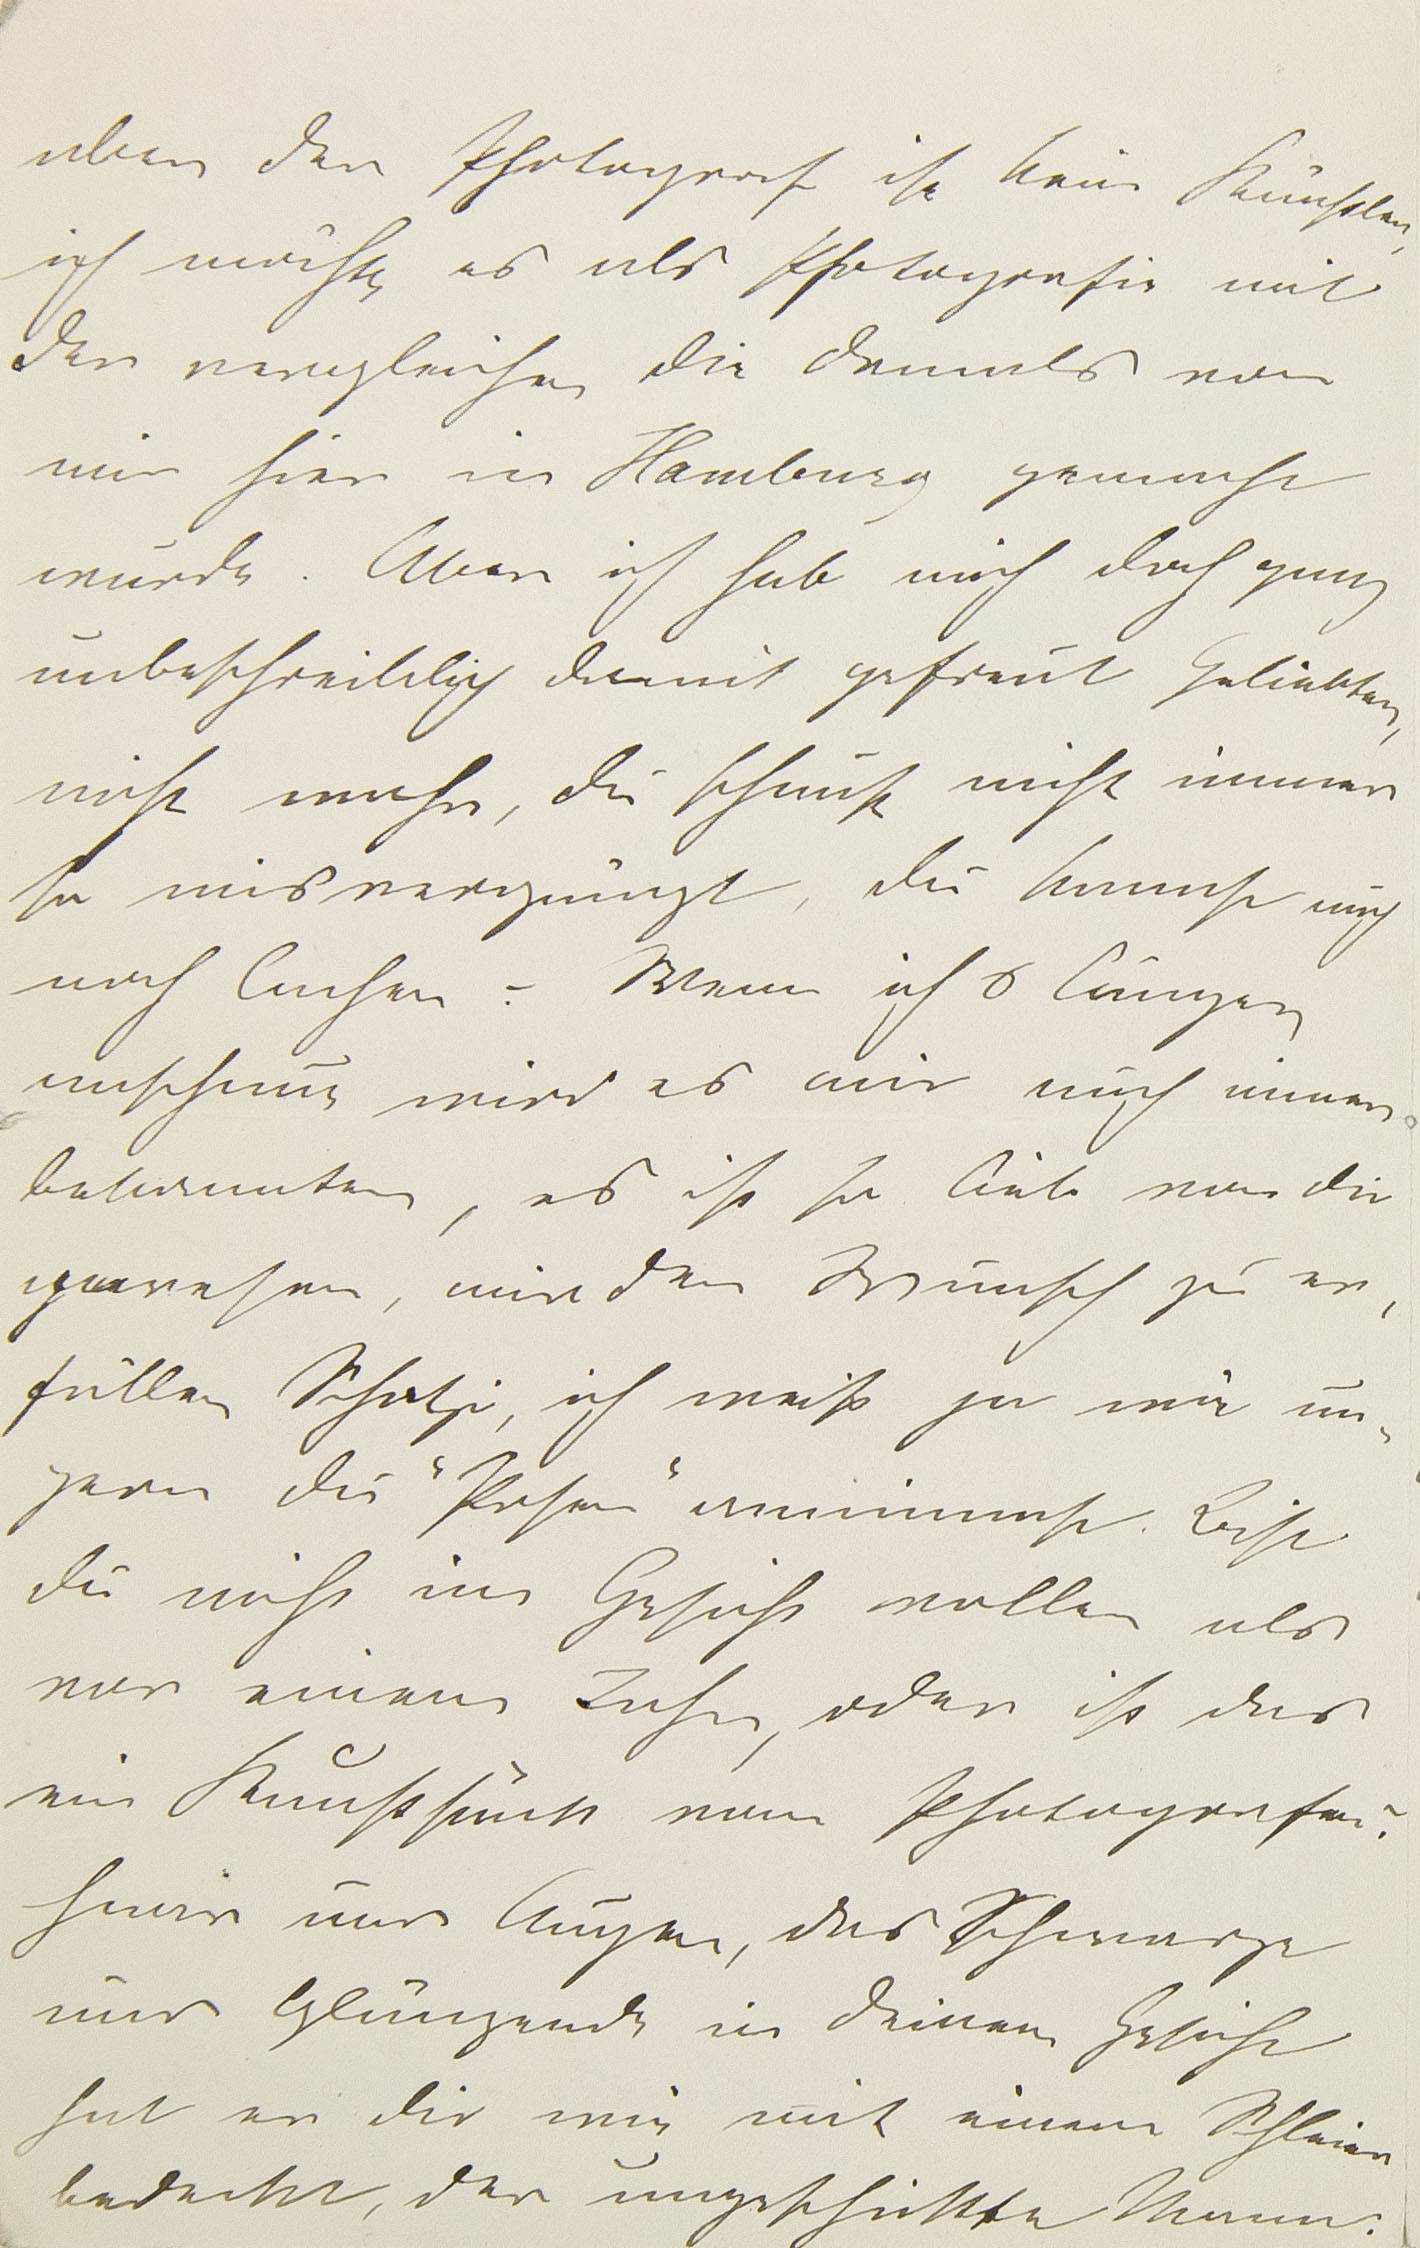 aber der Photograf ist kein Künstler,
ich möchte es als Photografie mit
der vergleichen die damals von
mir hier in Hamburg gemacht
wurde. Aber ich hab mich doch ganz
unbeschreiblich damit gefreut Geliebter,
nicht wahr, du schaust nicht immer
so misvergnügt, du kannst auch
noch lachen – Wenn ichs länger
anschaue wird es mir auch immer
bekannter, es ist so lieb von dir
gewesen, mir den Wunsch zu er,
füllen Schatzi, ich weiß ja wie un,
gern du "Posen" annimmst. Bist
du nicht im Gesicht voller als
vor einem Jahr, oder ist das
ein Kunststück vom Photografen?
Haar und Augen, das Schwarze
und Glänzende in deinem Gesicht
hat er dir wie mit einem Schleier
bedeckt, der ungeschickte Mann.